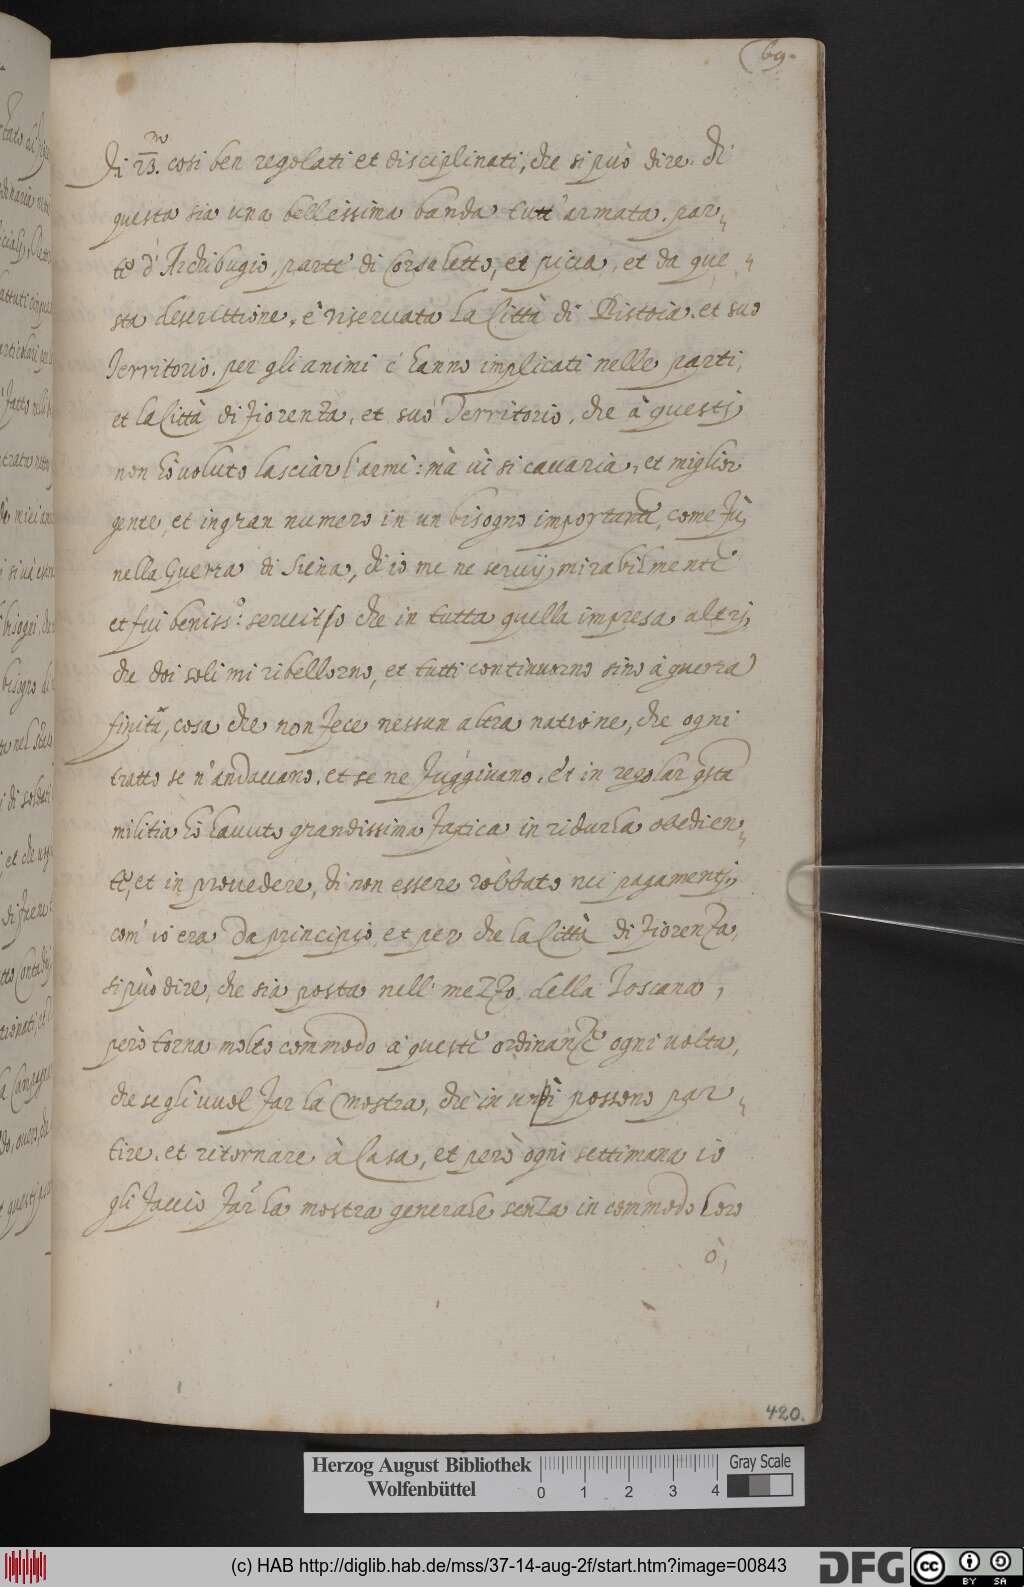 69.
di 23.m cosi ben regolati et disciplinati, che si può dire. di
questa sia una bellissima banda tutt'armata. par=
te d'Archibugio, parte di Corsaletto, et picca, et da que=
sta descrittione, è riservata la Città di Pistoia, et suo
Territorio. per gli animi c'hanno implicati nelle parti,
et la Città di Fiorenza, et suo Territorio, che à questi
non hò voluto lasciar l'armi: mà ui si cavaria, et miglior
gente, et in gran numero in un bisogno importante, come fù
nella Guerra di Siena, ch'io me ne seruij mirabilmente
et fui beniss.o seruito che in tutta quella impresa altri,
che doi soli mi ribellorno, et tutti continuorno sino à guerra
finita, cosa che non fece nessun altra natione, che ogni
tratto se n'andauano. et se ne fuggiuano. Et in regolar q̃sta
militia hò hauuto grandissima fatica in ridurla obedien=
te, et in prouedere, di non essere robbato nei pagamenti,
com' io era da principio, et per che la Città di Fiorenza,
si può dire, che sia posta nell' mezzo della Toscana,
però torna molto commodo à queste ordinanze ogni uolta,
che se gli uuol far la mostra, che in un dì possono par=
tire. et ritornare à Casa, et però ogni settimana io
gli faccio far la mostra generale senza incommodo loro
ò,
420.
Herzog August Bibliothek
Wolfenbüttel
0 1 2 3 4
Gray Scale
(c) HAB http://diglib.hab.de/mss/37-14-aug-2f/start.htm?image=00843
DFG
CC BY SA